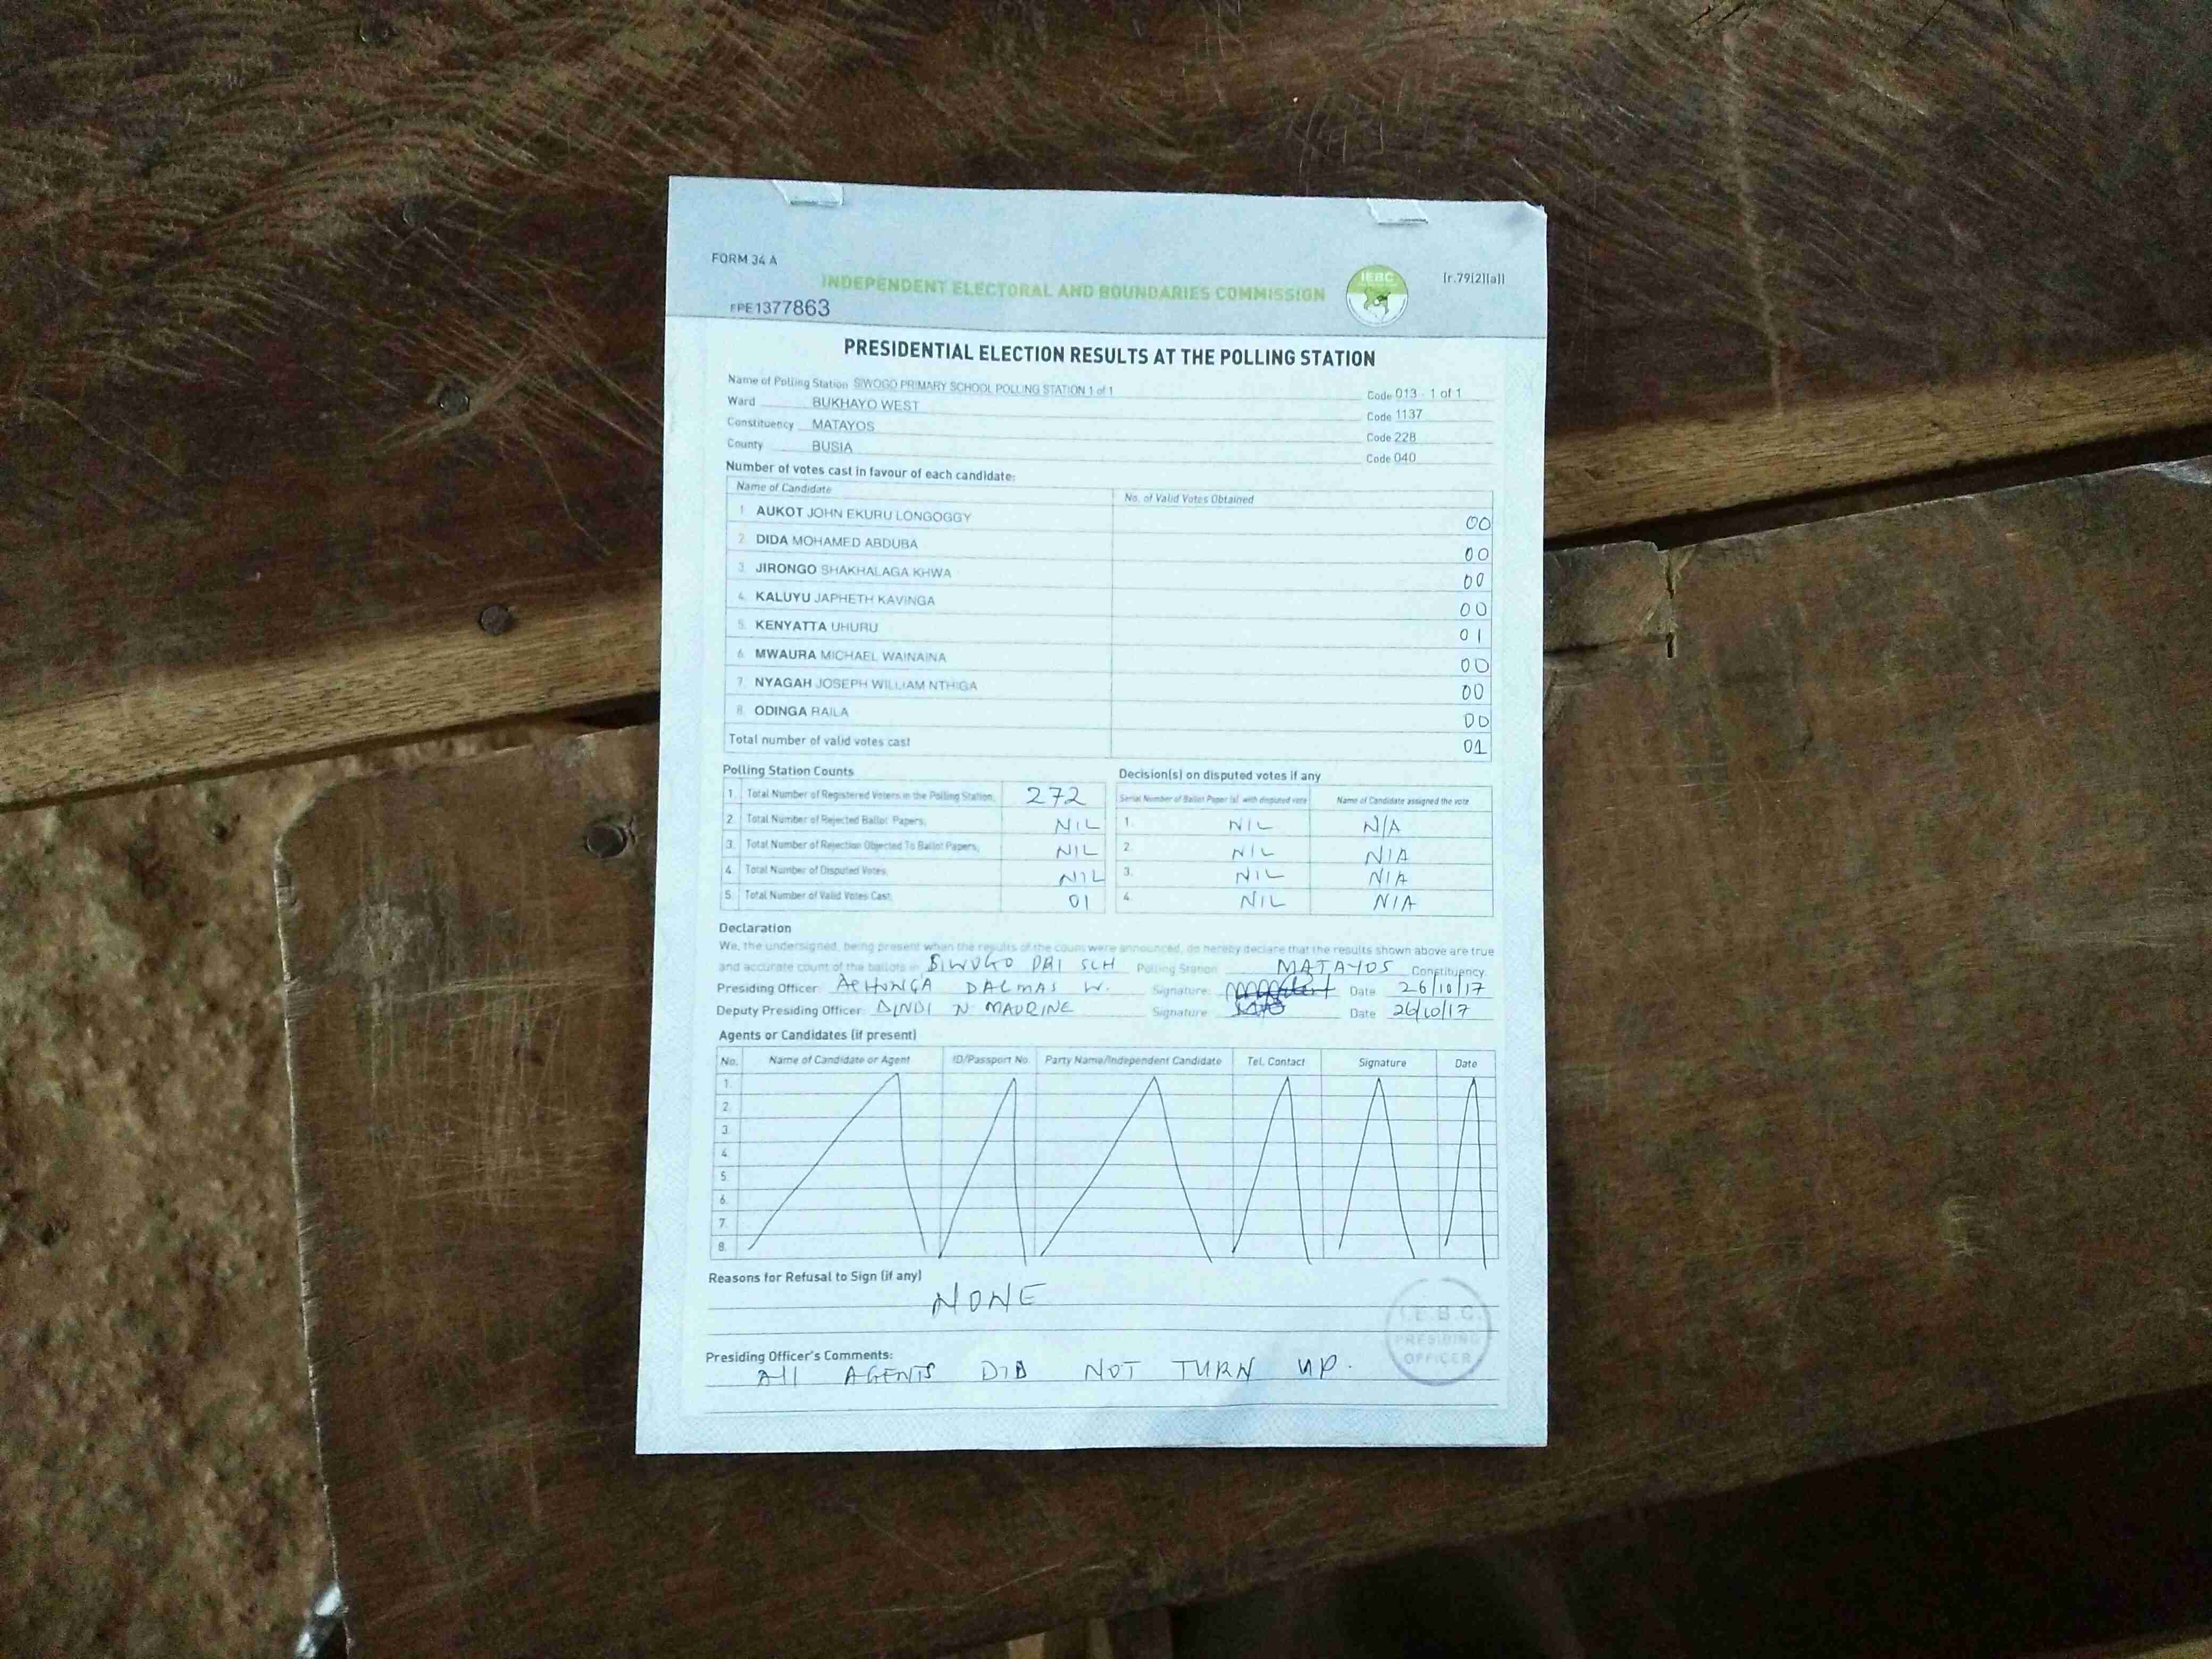 FORM 34 A
[r.79(2)(a)]
INDEPENDENT ELECTORAL AND BOUNDARIES COMMISSION
IEBC
FPE1377863
PRESIDENTIAL ELECTION RESULTS AT THE POLLING STATION
Name of Polling Station SIWOGO PRIMARY SCHOOL POLLING STATION 1 of 1 Code 013 - 1 of 1
Ward BUKHAYO WEST Code 1137
Constituency MATAYOS Code 228
County BUSIA Code 040
Number of votes cast in favour of each candidate:
Name of Candidate No. of Valid Votes Obtained
1. AUKOT JOHN EKURU LONGOGGY 00
2. DIDA MOHAMED ABDUBA 00
3. JIRONGO SHAKHALAGA KHWA 00
4. KALUYU JAPHETH KAVINGA 00
5. KENYATTA UHURU 01
6. MWAURA MICHAEL WAINAINA 00
7. NYAGAH JOSEPH WILLIAM NTHIGA 00
8. ODINGA RAILA 00
Total number of valid votes cast 01
Polling Station Counts
1. Total Number of Registered Voters in the Polling Station 272
2. Total Number of Rejected Ballot Papers. NIL
3. Total Number of Rejection Objected To Ballot Papers. NIL
4. Total Number of Disputed Votes NIL
5. Total Number of Valid Votes Cast. 01
Decision(s) on disputed votes if any
Serial Number of Ballot Paper (s) with disputed vote Name of Candidate assigned the vote
1. NIL N/A
2. NIL N/A
3. NIL N/A
4. NIL N/A
Declaration
We, the undersigned, being present when the results of the count were announced, do hereby declare that the results shown above are true
and accurate count of the ballots in SIWOGO PRI SCH Polling Station MATAYOS Constituency
Presiding Officer: DALMAS W. Signature: Date 26/10/17
Deputy Presiding Officer: N MAURINE Signature Date 26/10/17
Agents or Candidates (if present)
No. Name of Candidate or Agent ID/Passport No. Party Name/Independent Candidate Tel. Contact Signature Date
1.
2.
3.
4.
5.
6.
7.
8.
Reasons for Refusal to Sign (if any)
NONE
Presiding Officer's Comments:
All AGENTS DID NOT TURN UP.
I.E.B.C.
PRESIDING
OFFICER